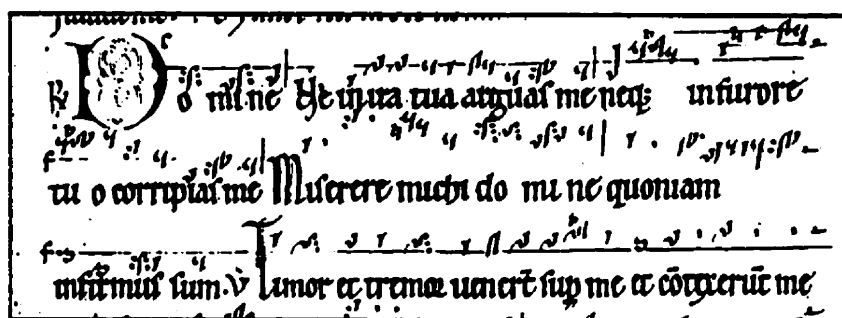 ℟ Do mi ne Ne in ira tua arguas me neq; in furore
tu o corripias me Miserere michi do mi ne quoniam
infirmus sum. ℣ Timor et tremor uenert̄ sup me et cōtexerūt me